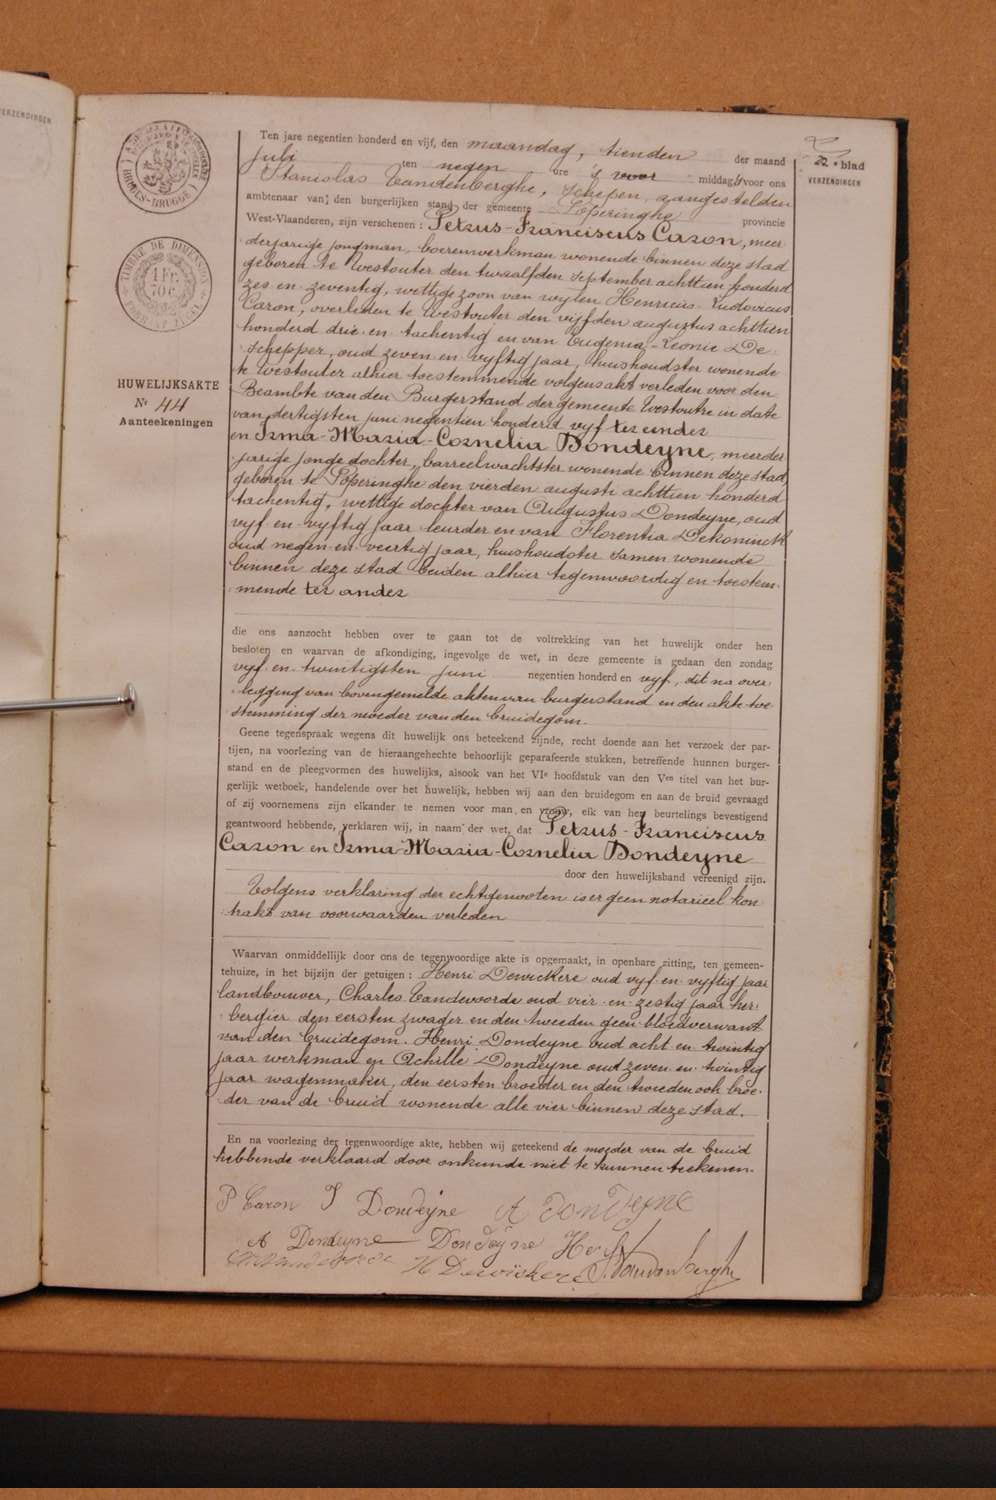 VERZENDINGEN
BRUGES-BRUGGE
TIMBRE DE DIMENSION
1 Fr.
70 c.
HUWELIJKSAKTE
Nr 44
Aanteekeningen
22e blad
VERZENDINGEN
Ten jare negentien honderd en vijf, den maandag, tienden der maand
juli ten negen ure 's voor middags voor ons
Stanislas Vandenberghe, schepen, aangestelden
ambtenaar van den burgerlijken stand der gemeente Poperinghe provincie
West-Vlaanderen, zijn verschenen: Petrus-Franciscus Caron, meer
derjarige jongman, boerenwerkman wonende binnen deze stad
geboren te Westouter den twaalfden september achttien honderd
zes en zeventig, wettige zoon van wijlen Henricus Ludovicus
Caron, overleden te Westouter den vijfden augustus achttien
honderd drie en tachentig en van Eugenia-Leonie De
Schepper, oud zeven en vijftig jaar, huishoudster wonende
te Westouter alhier toestemmende volgens akt verleden voor den
Beambte van den Burgerstand der gemeente Westoutre in date
van dertigsten juni negentien honderd vijf ter eender
en Irma-Maria-Cornelia Dondeyne, meerder
jarige jonge dochter, barreelwachtster wonende binnen deze stad,
geboren te Poperinghe den vierden augusti achttien honderd
tachentig, wettige dochter van Augustus Dondeyne, oud
vijf en vijftig jaar leurder en van Florentia Dekoninck
oud negen en veertig jaar, huishoudster samen wonende
binnen deze stad beiden alhier tegenwoordig en toestem-
mende ter ander
die ons aanzocht hebben over te gaan tot de voltrekking van het huwelijk onder hen
besloten en waarvan de afkondiging, ingevolge de wet, in deze gemeente is gedaan den zondag
vijf en twintigsten juni negentien honderd en vijf, dit na over-
legging van bovengemelde akten van burgerstand en den akte toe
stemming der moeder van den bruidegom.
Geene tegenspraak wegens dit huwelijk ons beteekend zijnde, recht doende aan het verzoek der par-
tijen, na voorlezing van de hieraangehechte behoorlijk geparafeerde stukken, betreffende hunnen burger-
stand en de pleegvormen des huwelijks, alsook van het VIe hoofdstuk van den Ven titel van het bur-
gerlijk wetboek, handelende over het huwelijk, hebben wij aan den bruidegom en aan de bruid gevraagd
of zij voornemens zijn elkander te nemen voor man en vrouw, elk van hen beurtelings bevestigend
geantwoord hebbende, verklaren wij, in naam der wet, dat Petrus-Franciscus
Caron en Irma-Maria-Cornelia Dondeyne
door den huwelijksband vereenigd zijn.
Volgens verklaring der echtgenooten is er geen notarieel kon
trakt van voorwaarden verleden
Waarvan onmiddellijk door ons de tegenwoordige akte is opgemaakt, in openbare zitting, ten gemeen-
tehuize, in het bijzijn der getuigen: Henri Dewickere oud vijf en vijftig jaar
landbouwer, Charles Vandevoorde oud vier en zestig jaar her-
bergier den eersten zwager en den tweeden geen bloedverwant
van den bruidegom. Henri Dondeyne oud acht en twintig
jaar werkman en Achille Dondeyne oud zeven en twintig
jaar wagenmaker, den eersten broeder en den tweeden ook broe-
der van de bruid wonende alle vier binnen deze stad.
En na voorlezing der tegenwoordige akte, hebben wij geteekend de moeder van de bruid
hebbende verklaard door onkunde niet te kunnen teekenen.
P Caron I Dondeyne A Dondeyne
A Dondeyne Dondeyne Henri
H Dewickere S. Vandenberghe